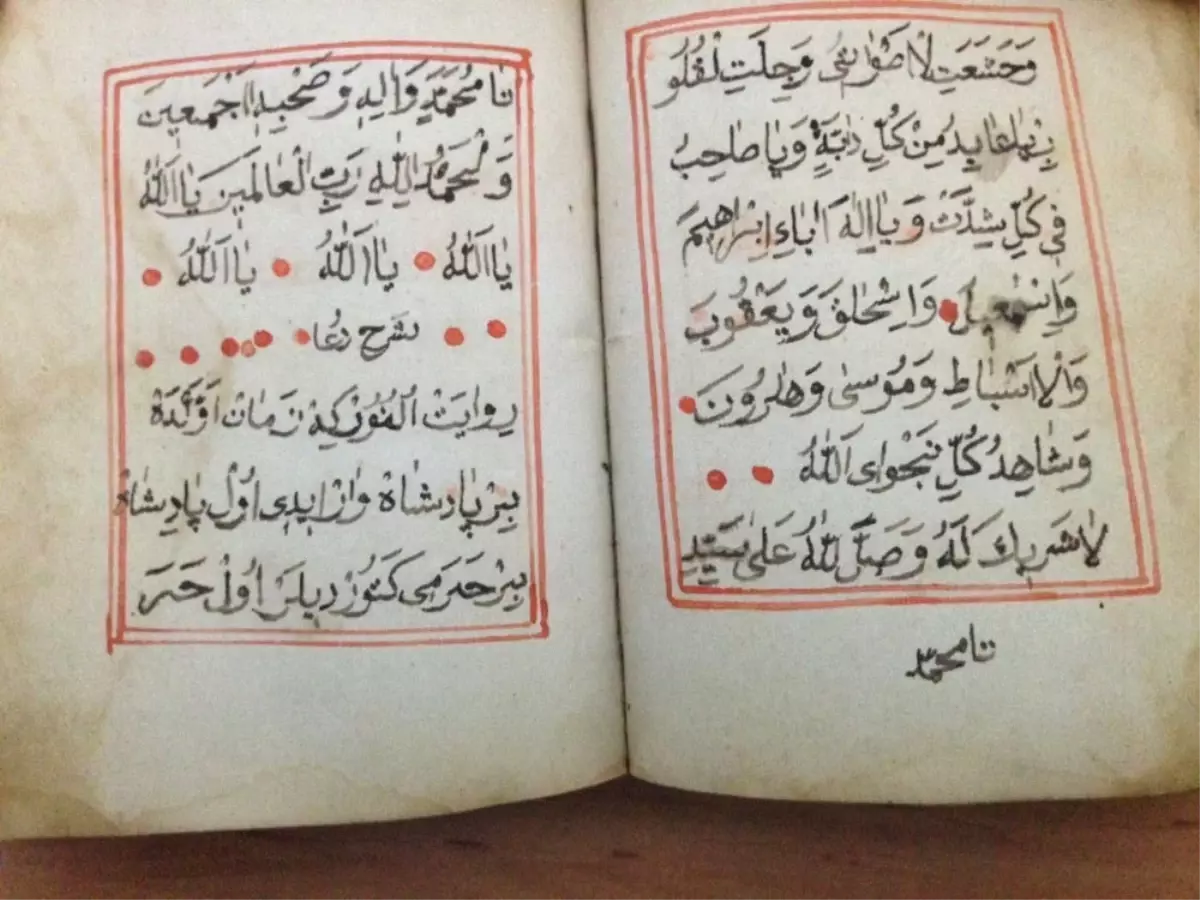 وَخَشَعَتِ لْاَصْوَاتُى وَجِلَتِ لْقُلُو
مِنْ كُلِّ دَابَةٍ وَيَا صَاحِبُ
فِى كُلِّ شِدَّتْ وَيَا اِلٰهَ اٰبَاءِ اِبْرَاهِيمَ
وَاِسْمٰعِيلَ وَاِسْحٰاقَ وَيَعْقُوبَ
وَالْاَسْبَاطِ وَمُوسٰى وَهٰارُونَ
وَشَاهِدُ كُلِّ نَجْوَاى اَللّٰهُ
لٰا شَرِيكَ لَهُ وَصَلَّ للّٰهُ عَلٰى سَيِّدِ
نا محمّد
نَا مُحَمَّدٍ وَاٰلِهِ وَصَحْبِهِ اَجْمَعِينَ
وَلْحَمْدُ لِلّٰهِ رَبِّ لْعَالَمِينَ يَا اَللّٰهُ
يٰا اَللّٰهُ يٰا اَللّٰهُ يٰا اَللّٰهُ
شرح دعا
رِوٰايَتْ اُلنُورْ كِهْ زَمَانْ اَوَّلْدَهْ
بِيرْ پَادِشَاهْ وَارْ اِيدِى اُولْ پَادِشَاهْ
بِيرْ حَرَمِى اُولْ حَرَ